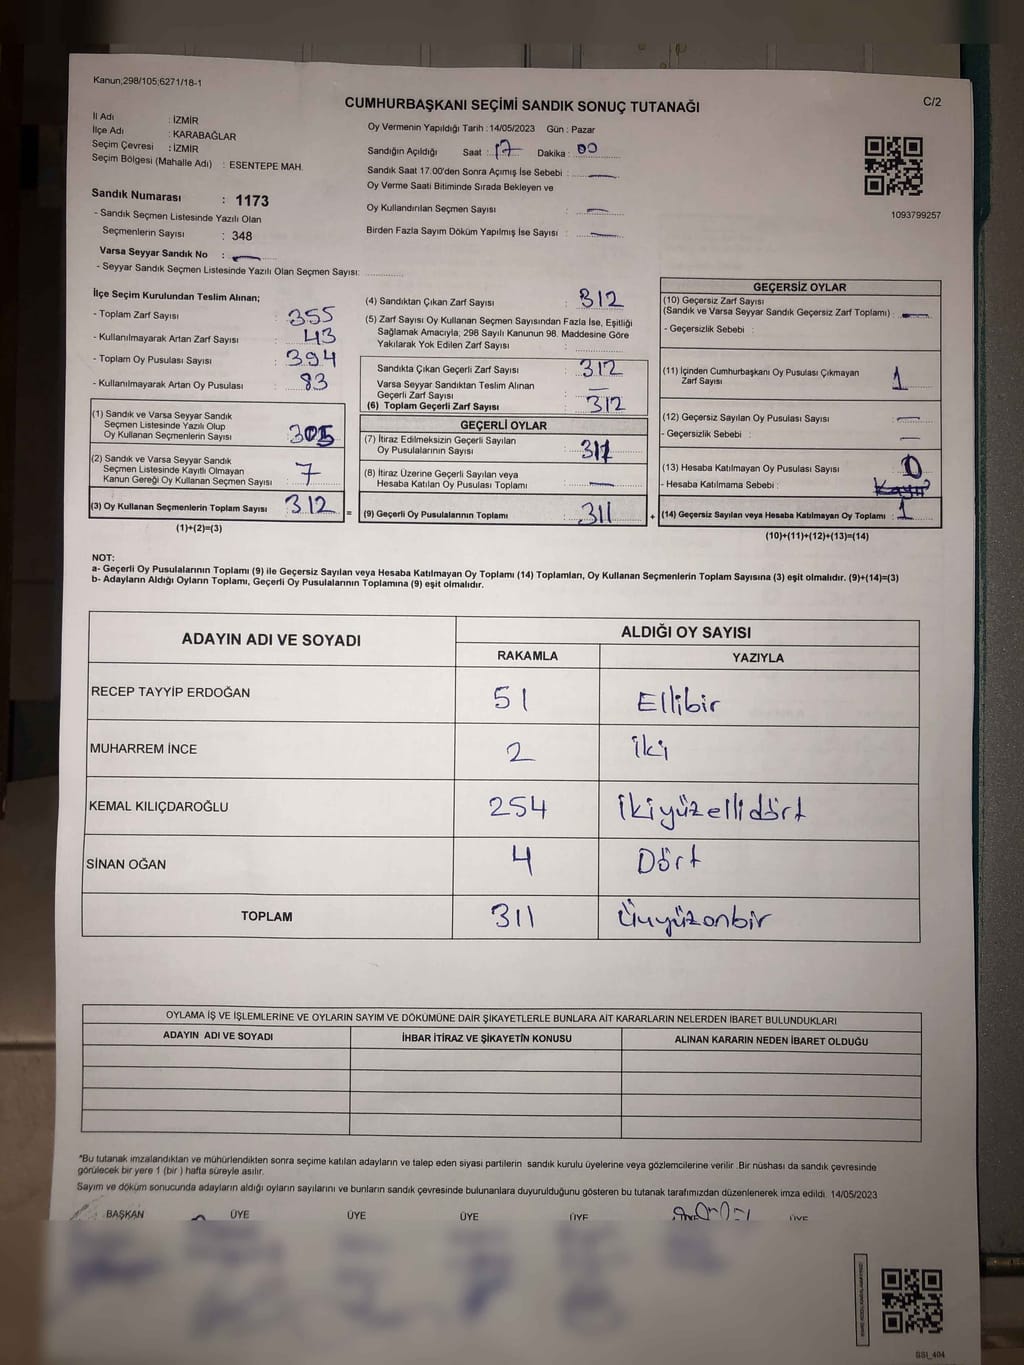 Kanun;298/105;6271/18-1
CUMHURBAŞKANI SEÇİMİ SANDIK SONUÇ TUTANAĞI
C/2
İl Adı : İZMİR
İlçe Adı : KARABAĞLAR
Seçim Çevresi : İZMİR
Seçim Bölgesi (Mahalle Adı) : ESENTEPE MAH.
Oy Vermenin Yapıldığı Tarih : 14/05/2023 Gün : Pazar
Sandığın Açıldığı Saat : 17 Dakika : 00
Sandık Saat 17:00'den Sonra Açımış İse Sebebi : —
Oy Verme Saati Bitiminde Sırada Bekleyen ve
Oy Kullandırılan Seçmen Sayısı : —
Birden Fazla Sayım Döküm Yapılmış İse Sayısı : —
1093799257
Sandık Numarası : 1173
- Sandık Seçmen Listesinde Yazılı Olan
Seçmenlerin Sayısı : 348
Varsa Seyyar Sandık No : —
- Seyyar Sandık Seçmen Listesinde Yazılı Olan Seçmen Sayısı:
İlçe Seçim Kurulundan Teslim Alınan;
- Toplam Zarf Sayısı : 355
- Kullanılmayarak Artan Zarf Sayısı : 43
- Toplam Oy Pusulası Sayısı : 394
- Kullanılmayarak Artan Oy Pusulası : 83
(1) Sandık ve Varsa Seyyar Sandık
Seçmen Listesinde Yazılı Olup
Oy Kullanan Seçmenlerin Sayısı : 305
(2) Sandık ve Varsa Seyyar Sandık
Seçmen Listesinde Kayıtlı Olmayan
Kanun Gereği Oy Kullanan Seçmen Sayısı : 7
(3) Oy Kullanan Seçmenlerin Toplam Sayısı : 312 =
(1)+(2)=(3)
(4) Sandıktan Çıkan Zarf Sayısı : 312
(5) Zarf Sayısı Oy Kullanan Seçmen Sayısından Fazla İse, Eşitliği
Sağlamak Amacıyla; 298 Sayılı Kanunun 98. Maddesine Göre
Yakılarak Yok Edilen Zarf Sayısı :
Sandıkta Çıkan Geçerli Zarf Sayısı : 312
Varsa Seyyar Sandıktan Teslim Alınan
Geçerli Zarf Sayısı : —
(6) Toplam Geçerli Zarf Sayısı : 312
GEÇERLİ OYLAR
(7) İtiraz Edilmeksizin Geçerli Sayılan
Oy Pusulalarının Sayısı : 311
(8) İtiraz Üzerine Geçerli Sayılan veya
Hesaba Katılan Oy Pusulası Toplamı : —
(9) Geçerli Oy Pusulalarının Toplamı : 311 +
GEÇERSİZ OYLAR
(10) Geçersiz Zarf Sayısı
(Sandık ve Varsa Seyyar Sandık Geçersiz Zarf Toplamı) : —
- Geçersizlik Sebebi :
(11) İçinden Cumhurbaşkanı Oy Pusulası Çıkmayan
Zarf Sayısı : 1
(12) Geçersiz Sayılan Oy Pusulası Sayısı : —
- Geçersizlik Sebebi : —
(13) Hesaba Katılmayan Oy Pusulası Sayısı : 0
- Hesaba Katılmama Sebebi :
(14) Geçersiz Sayılan veya Hesaba Katılmayan Oy Toplamı : 1
(10)+(11)+(12)+(13)=(14)
NOT:
a- Geçerli Oy Pusulalarının Toplamı (9) ile Geçersiz Sayılan veya Hesaba Katılmayan Oy Toplamı (14) Toplamları, Oy Kullanan Seçmenlerin Toplam Sayısına (3) eşit olmalıdır. (9)+(14)=(3)
b- Adayların Aldığı Oyların Toplamı, Geçerli Oy Pusulalarının Toplamına (9) eşit olmalıdır.
ADAYIN ADI VE SOYADI ALDIĞI OY SAYISI
RAKAMLA YAZIYLA
RECEP TAYYİP ERDOĞAN 51 Ellibir
MUHARREM İNCE 2 iki
KEMAL KILIÇDAROĞLU 254 İkiyüzellidört
SİNAN OĞAN 4 Dört
TOPLAM 311 Üçyüzonbir
OYLAMA İŞ VE İŞLEMLERİNE VE OYLARIN SAYIM VE DÖKÜMÜNE DAİR ŞİKAYETLERLE BUNLARA AİT KARARLARIN NELERDEN İBARET BULUNDUKLARI
ADAYIN ADI VE SOYADI İHBAR İTİRAZ VE ŞİKAYETİN KONUSU ALINAN KARARIN NEDEN İBARET OLDUĞU
*Bu tutanak imzalandıktan ve mühürlendikten sonra seçime katılan adayların ve talep eden siyasi partilerin sandık kurulu üyelerine veya gözlemcilerine verilir .Bir nüshası da sandık çevresinde
görülecek bir yere 1 (bir ) hafta süreyle asılır.
Sayım ve döküm sonucunda adayların aldığı oyların sayılarını ve bunların sandık çevresinde bulunanlara duyurulduğunu gösteren bu tutanak tarafımızdan düzenlenerek imza edildi. 14/05/2023
BAŞKAN ÜYE ÜYE ÜYE ÜYE ÜYE
SSI_404